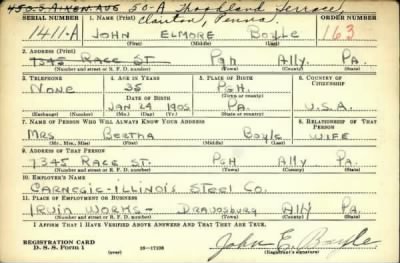 450 S. AIKEN AVE 50-A Woodland Terrace,
Clairton, Penna.
SERIAL NUMBER 1. NAME (Print) ORDER NUMBER
1411-A JOHN ELMORE BOYLE 163
(First) (Middle) (Last)
2. ADDRESS (Print)
7345 RACE ST Pgh Ally Pa.
(Number and street or R. F. D. number) (Town) (County) (State)
3. TELEPHONE 4. AGE IN YEARS 5. PLACE OF BIRTH 6. COUNTRY OF CITIZENSHIP
NONE 35 PGH.
DATE OF BIRTH (Town or county)
JAN 24 1905 PA. U.S.A.
(Exchange) (Number) (Mo.) (Day) (Yr.) (State or country)
7. NAME OF PERSON WHO WILL ALWAYS KNOW YOUR ADDRESS 8. RELATIONSHIP OF THAT PERSON
MRS BERTHA BOYLE WIFE
(Mr., Mrs., Miss) (First) (Middle) (Last)
9. ADDRESS OF THAT PERSON
7345 RACE ST. PGH Ally PA.
(Number and street or R. F. D. number) (Town) (County) (State)
10. EMPLOYER'S NAME
CARNEGIE-ILLINOIS STEEL CO.
11. PLACE OF EMPLOYMENT OR BUSINESS
IRVIN WORKS- DRAVOSBURG Ally PA.
(Number and street or R. F. D. number) (Town) (County) (State)
I AFFIRM THAT I HAVE VERIFIED ABOVE ANSWERS AND THAT THEY ARE TRUE.
REGISTRATION CARD
D. S. S. Form 1 (over) 16-17105 John E. Boyle
(Registrant's signature)